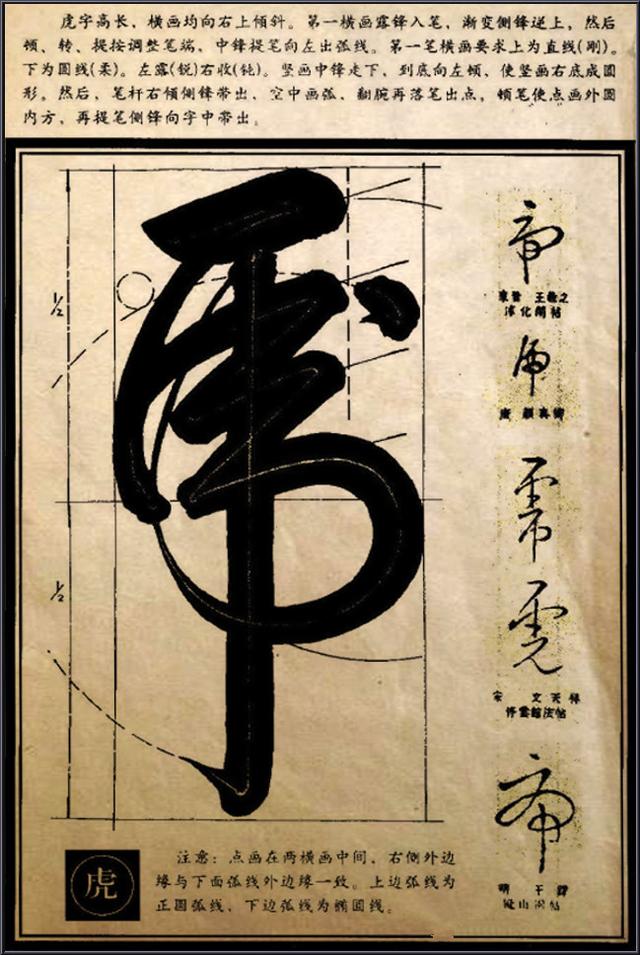 虎字高长，横画均向右上倾斜。第一横画露锋入笔，渐变侧锋逆上，然后
顿、转、提按调整笔端，中锋提笔向左出弧线。第一笔横画要求上为直线(刚)。
下为圆线(柔)。左露(锐)右收(钝)。竖画中锋走下，到底向左顿、使竖画右底成圆
形。然后、笔杆右倾侧锋带出、空中画弧、翻腕再落笔出点，顿笔使点画外圆
内方，再提笔侧锋向字中带出。
½
½
東晉 王羲之
淳化閣帖
唐 顏真卿
宋 文天祥
停雲館法帖
明
山
帖
虎
注意：点画在两横画中间，右侧外边
缘与下面弧线外边缘一致。上边弧线为
正圆弧线，下边弧线为椭圆线。